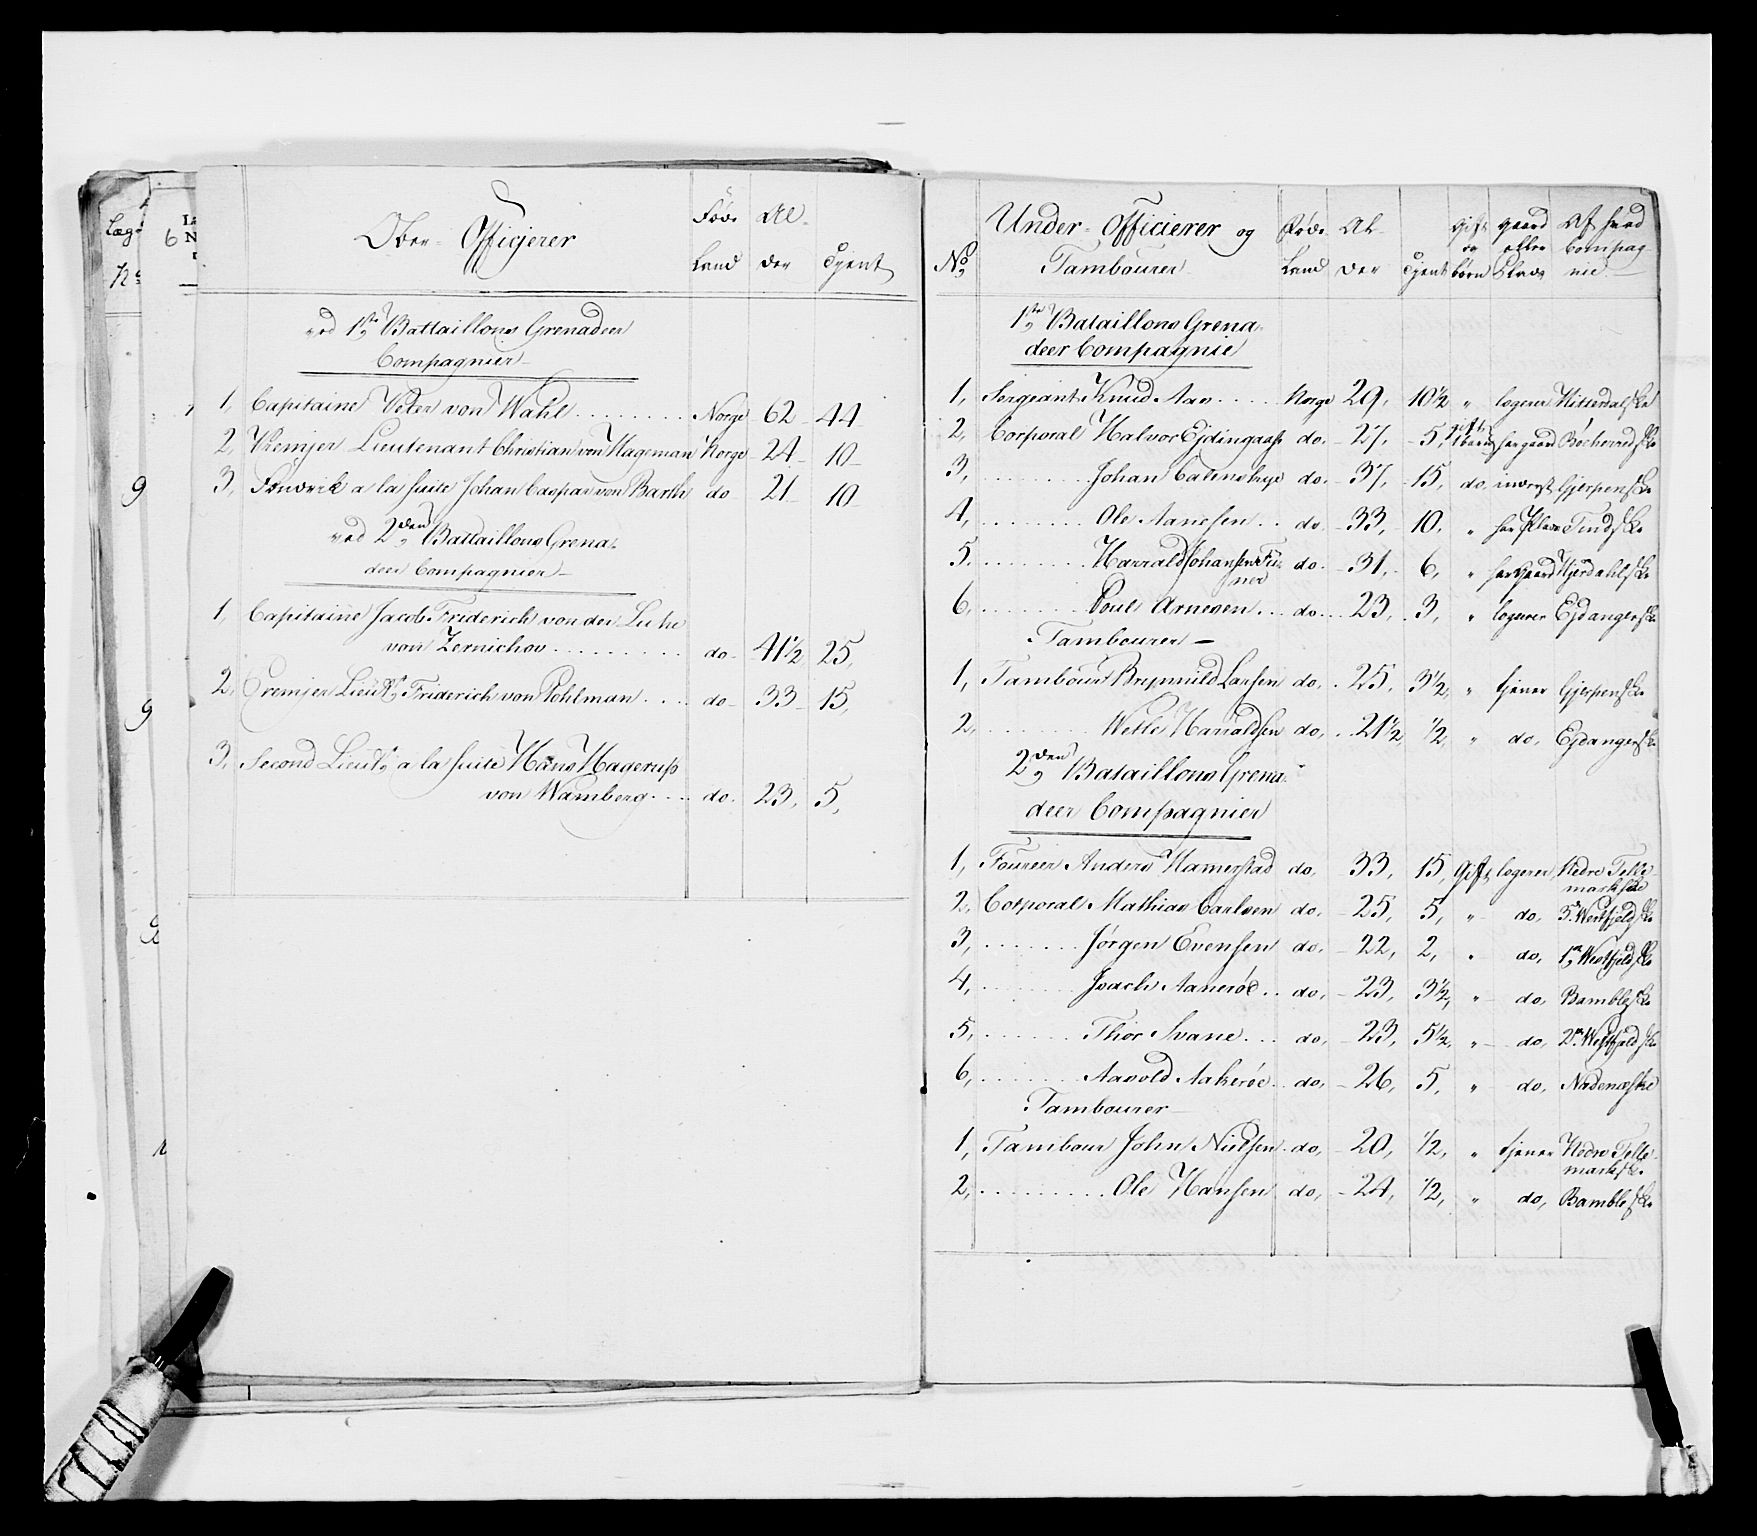 Læg
6
N:
9
9
Ober- Officjerer
Føde Al- Tjent
Land der
ved 1ste Battaillons Grenadeer
Compagnier
1, Capitaine Peter von Wahl ........ Norge 62 44
2, Premjer Lieutenant Christian von Hageman Norge 24 10
3, Fendrik a la suite Johan Caspar von Barth do 21 10
ved 2den Battaillons Grena-
deer Compagnier
1, Capitaine Jacob Friderich von der Lühe
von Zernichov ......... do 41 1/2 25,
2, Premjer Lieut: Friderich von Pohlman .... do 33 15,
3, Second Lieut: a la suite Hans Hagerup
von Wamberg .... do. 23, 5,
Under- Officierer og Føde Al- Gift gaard Af hvad
No, Tambourer Land der Tjent og børn eller Plads Compag-
nie
1ste Bataillons Grena-
deer Compagnie
1, Sergeant Knud Aas ..... Norge 29, 10 1/2 " logerer Hitterdalske
2, Corporal Halvor Ejdingaas do. 27, 5, har gaard Bøeherredske
3, ........ Johan do. 37, 15, do, Gjerpenske
4, ........ Ole Aanesen .. do. 33, 10, " har Plads Tindske
5. ........ Harrald Johansen do. 31, 6, " har Gaard Hjerdahlske
6, ........ Poul Arnesen ... do... 23, 3, " logerer Ejdangerske
Tambourer
1, Tambour Brynnild Larsen do, 25, 3 1/2, " tjener Gjerpenske
2, ........ Wetle Haraldsen do, 21 1/2 1/2, " do, Ejdangerske
2den Bataillons Grena-
deer Compagnier
1, Foureer Anders Hamerstad do, 33, 15, Gift logerer Nedre Telle-
markske
2, Corporal Mathias Carlsen do, 25, 5, " do, 3. Westfjeldske
3, ....... Jørgen Evensen do, 22, 2, " do, 1. Westfjeldske
4, ....... Isach Aanerøe .. do, 23, 3 1/2, " do, Bambleske
5, ....... Thor Svane ... do, 23, 5 1/2, " do, 2. Westfjeldske
6, ....... Aavold Aakerøe .. do, 26, 5, " do, Nedenæske
Tambourer
1, Tambour John Nielsen do, 20, 1/2, " tjener Nedre Telle-
markske
2, ......... Ole Hansen do, 24, 1/2, " do, Bambleske